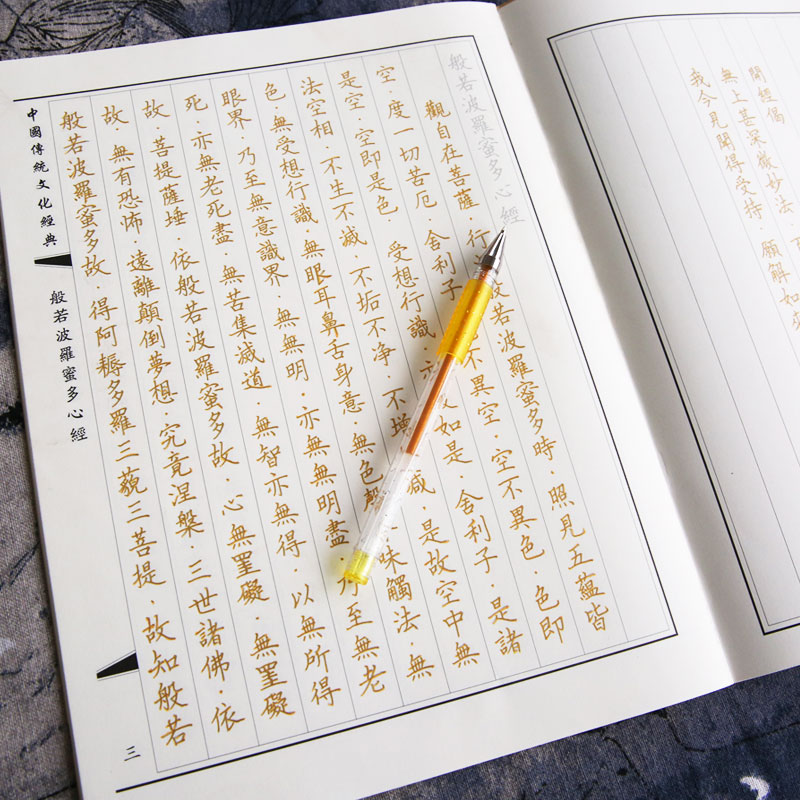 開經偈
無上甚深微妙法
我今見聞得受持·願解如
般若波羅蜜多心經
觀自在菩薩·行般若波羅蜜多時·照見五蘊皆
空·度一切苦厄·舍利子·不異空·空不異色·色即
是空·空即是色·受想行識·如是·舍利子·是諸
法空相·不生不滅·不垢不净·不增減·是故空中無
色·無受想行識·無眼耳鼻舌身意·無色味觸法·無
眼界·乃至無意識界·無無明·亦無無明盡·乃至無老
死·亦無老死盡·無苦集滅道·無智亦無得·以無所得
故·菩提薩埵·依般若波羅蜜多故·心無罣礙·無罣礙
故·無有恐怖·遠離顛倒夢想·究竟涅槃·三世諸佛·依
般若波羅蜜多故·得阿耨多羅三藐三菩提·故知般若
中國傳統文化經典
般若波羅蜜多心經
三